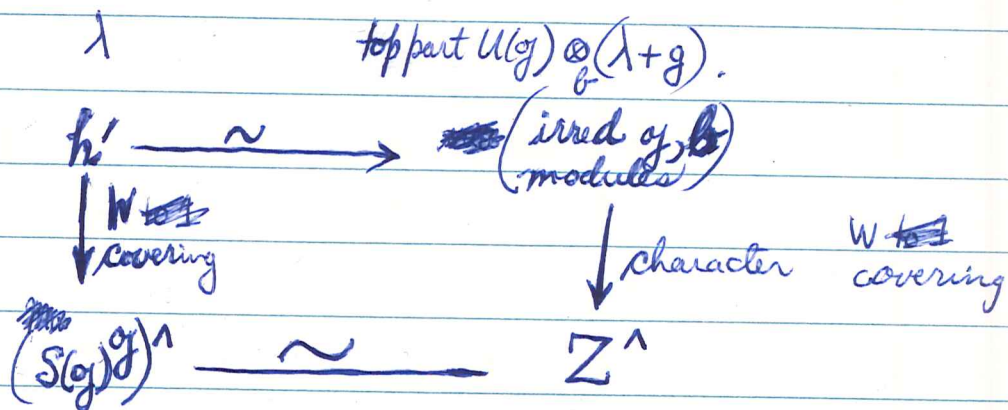 λ top part U(g) ⊗_b (λ+g).
h' ~ (irred g, b
modules)
W
covering
character W
covering
(S(g)^g)^ ~ Z^